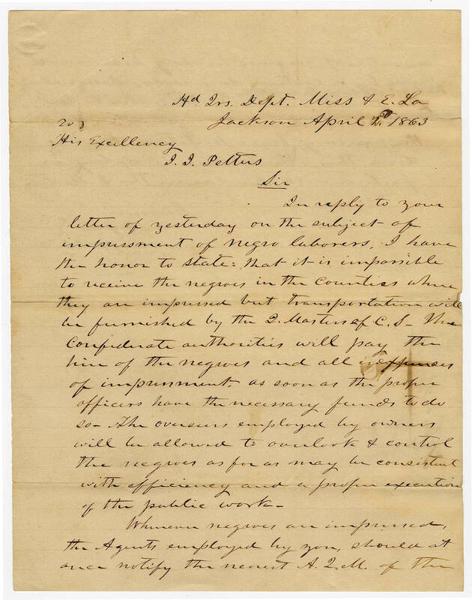 Hd Qrs. Dept. Miss & E. La
Jackson April 1863
To
His Excellency
J. J. Pettus
Sir
In reply to your
letter of yesterday on the subject of
impressment of negro laborers, I have
the honor to state: that it is impossible
to receive the negroes in the Counties where
they are impressed but transportation will
be furnished by the Q. Masters of C. S- The
Confederate authorities will pay the
hire of the negroes and all expenses
of impressment as soon as the proper
officers have the necessary funds to do
so- The overseers employed by owners
will be allowed to overlook & control
the negroes as far as may be consistent
with efficiency and a proper execution
of the public work-
Whenever negroes are impressed,
the Agents employed by you, should at
once notify the nearest A. Q. M. of the